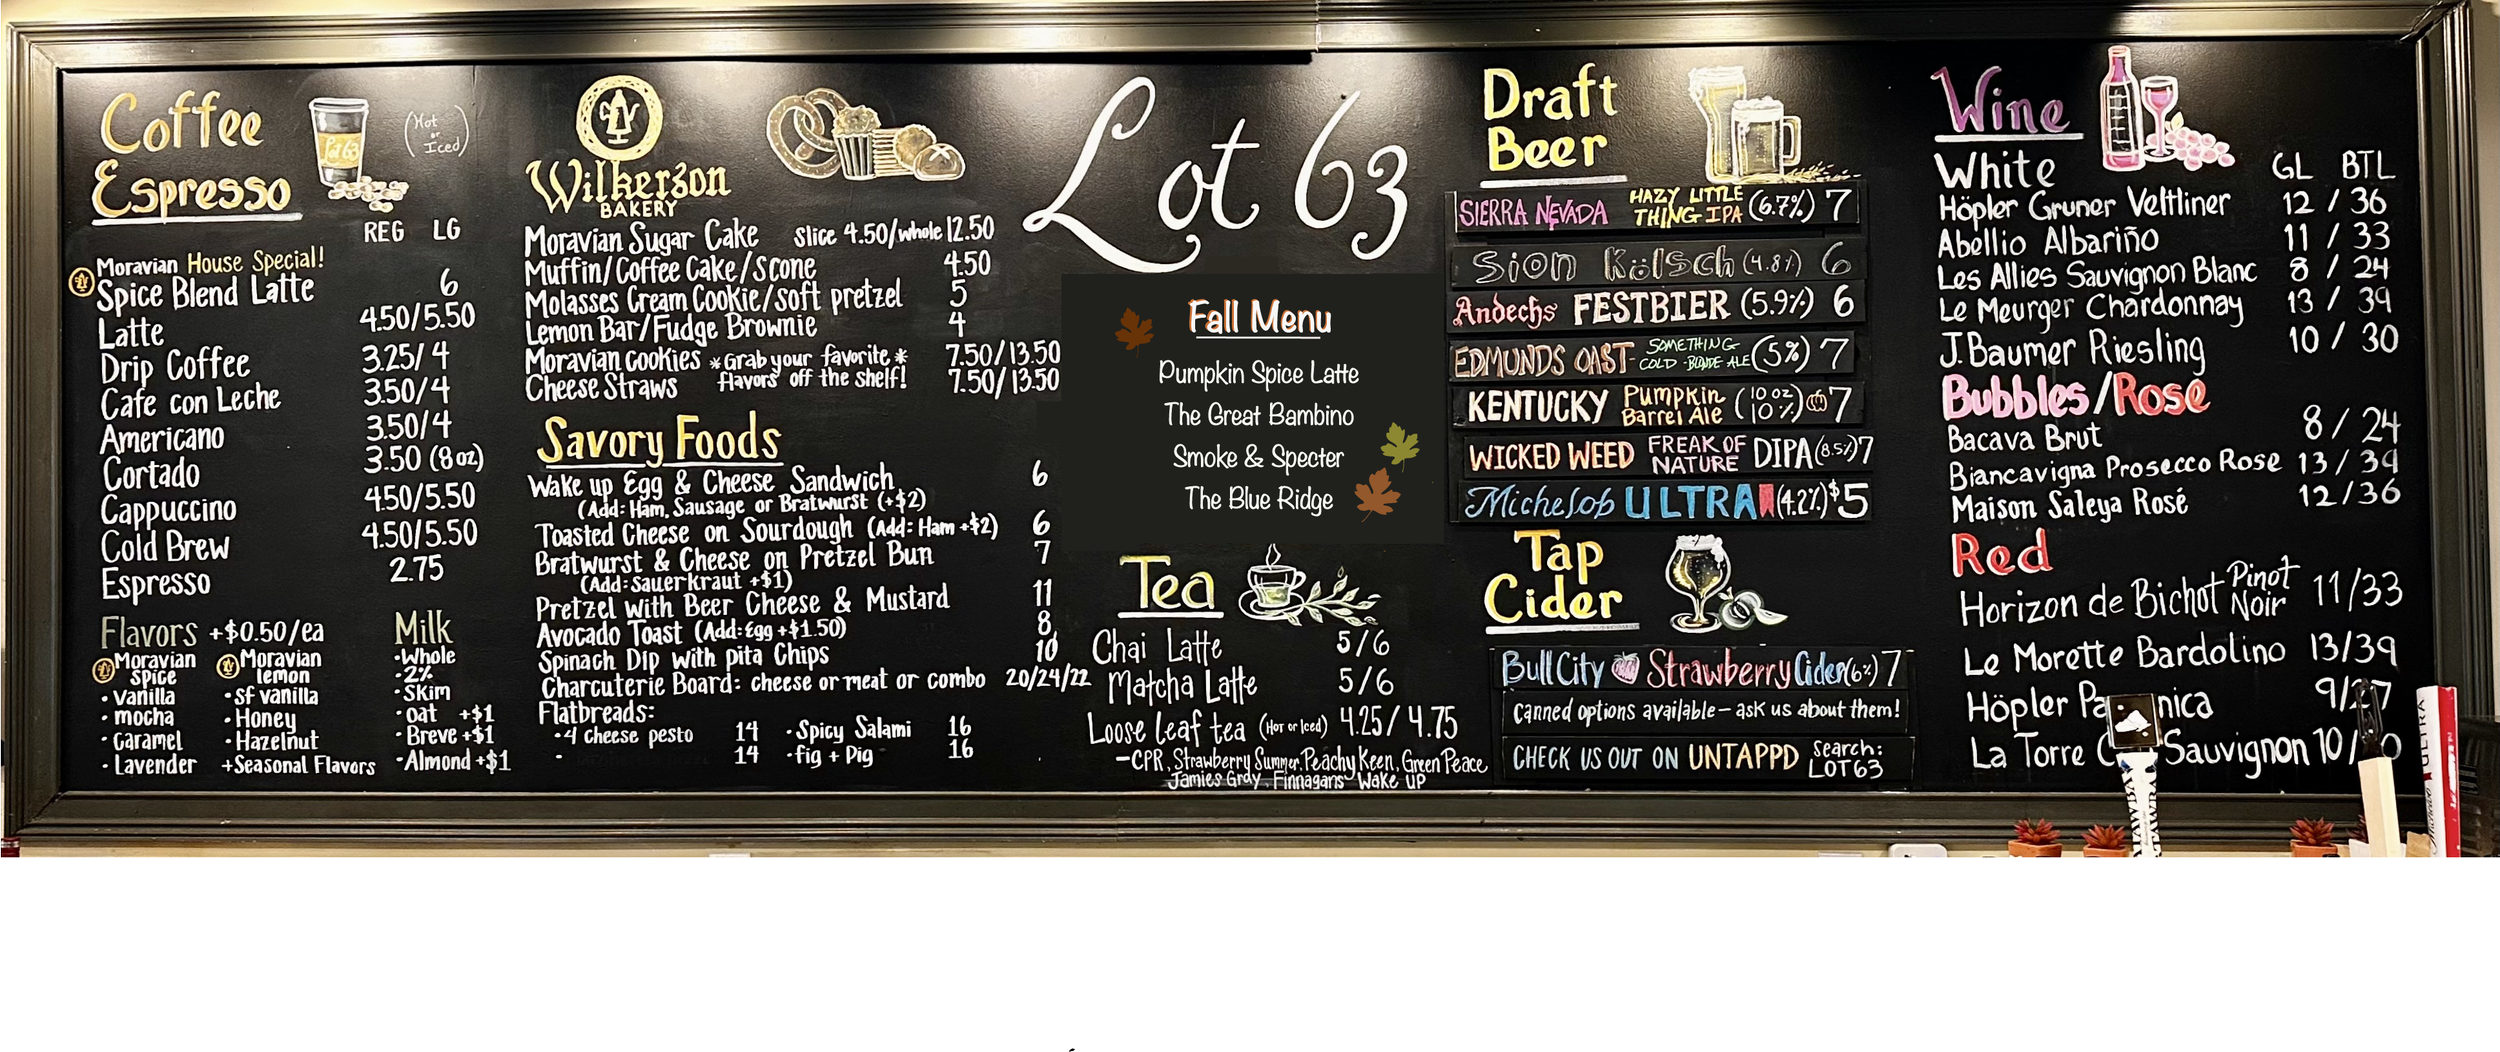 Coffee
Espresso
(Hot or Iced)
Lot 63
REG LG
Moravian House Special!
Spice Blend Latte 6
Latte 4.50/5.50
Drip Coffee 3.25/4
Cafe con Leche 3.50/4
Americano 3.50/4
Cortado 3.50 (8oz)
Cappuccino 4.50/5.50
Cold Brew 4.50/5.50
Espresso 2.75
Flavors +$0.50/ea
Moravian spice
• vanilla
• mocha
• caramel
• Lavender
Moravian lemon
• sf vanilla
• Honey
• Hazelnut
+Seasonal Flavors
Milk
• Whole
• 2%
• Skim
• oat +$1
• Breve +$1
• Almond +$1
Wilkerson
BAKERY
Moravian Sugar Cake Slice 4.50/whole 12.50
Muffin/Coffee Cake/Scone 4.50
Molasses Cream Cookie/soft pretzel 5
Lemon Bar/Fudge Brownie 4
Moravian cookies *Grab your favorite* 7.50/13.50
Cheese Straws flavors off the shelf! 7.50/13.50
Savory Foods
Wake up Egg & Cheese Sandwich 6
(Add: Ham, Sausage or Bratwurst (+$2)
Toasted Cheese on Sourdough (Add: Ham +$2) 6
Bratwurst & Cheese on Pretzel Bun 7
(Add: Sauerkraut +$1)
Pretzel with Beer Cheese & Mustard 11
Avocado Toast (Add: Egg +$1.50) 8
Spinach Dip with pita Chips 10
Charcuterie Board: cheese or meat or combo 20/24/22
Flatbreads:
• 4 cheese pesto 14 • Spicy Salami 16
• 14 • fig + Pig 16
Lot 63
Fall Menu
Pumpkin Spice Latte
The Great Bambino
Smoke & Specter
The Blue Ridge
Tea
Chai Latte 5/6
Matcha Latte 5/6
Loose leaf tea (Hot or Iced) 4.25/4.75
-CPR, Strawberry Summer, Peachy Keen, Green Peace
Jamies Gray, Finnagans Wake up
Draft
Beer
SIERRA NEVADA HAZY LITTLE THING IPA (6.7%) 7
Sion Kölsch (4.8%) 6
Andechs FESTBIER (5.9%) 6
EDMUNDS OAST- SOMETHING COLD -BLONDE ALE (5%) 7
KENTUCKY Pumpkin Barrel Ale (10 oz 10%) 7
WICKED WEED FREAK OF NATURE DIPA (8.5%) 7
Michelob ULTRA (4.2%) $5
Tap
Cider
Bull City Strawberry Cider (6%) 7
Canned options available – ask us about them!
CHECK US OUT ON UNTAPPD search: LOT63
Wine
White GL BTL
Höpler Gruner Veltliner 12 / 36
Abellio Albariño 11 / 33
Les Allies Sauvignon Blanc 8 / 24
Le Meurger Chardonnay 13 / 39
J. Baumer Riesling 10 / 30
Bubbles/Rose
Bacava Brut 8 / 24
Biancavigna Prosecco Rose 13 / 39
Maison Saleya Rosé 12/36
Red
Horizon de Bichot Pinot Noir 11/33
Le Morette Bardolino 13/39
Höpler Pa nica 9/27
La Torre C Sauvignon 10/ 0
ULTRA